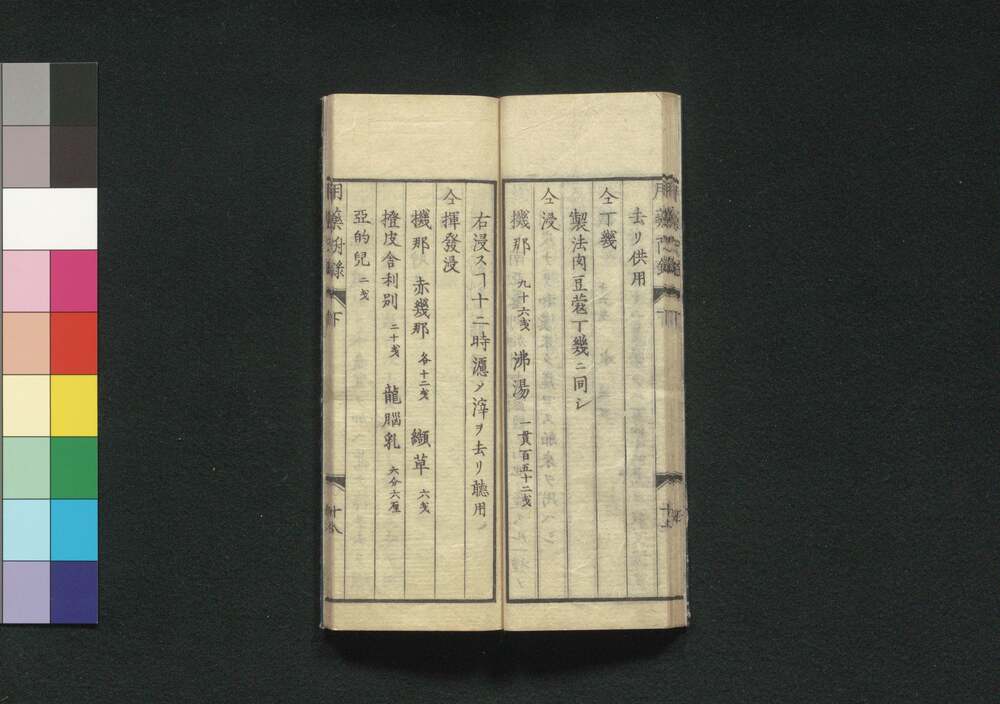 去リ供用
仝丁幾
製法肉豆蔲丁幾ニ同シ
仝浸
機那 九十六戔 沸湯 一貫百五十二戔
右浸スヿ十二時濾メ滓ヲ去リ聴用
仝揮發浸
機那 赤幾那 各十二戔 纈草 六戔
橙皮舎利別 二十戔 龍腦乳 六分六厘
亞的兒 二戔
下